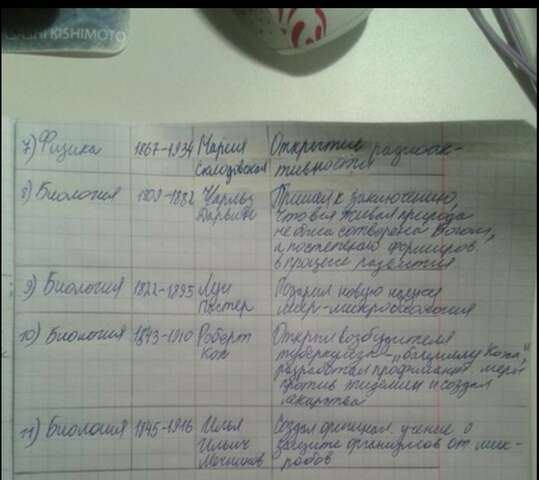 MASASHI KISHIMOTO
7) Физика 1867-1934 Мария Склодовская Открытие радиоак-
тивности
8) Биология 1809-1882 Чарльз Дарвин Пришел к заключению,
что вся живая природа
не была сотворена Богом,
а постепенно формиров.
в процессе развития
9) Биология 1822-1895 Луи Пастер Подарил новую науку
мир-микробиология
10) Биология 1843-1910 Роберт Кох Открыл возбудителя
туберкулеза-„бациллу Коха",
разработал профилакт. меры
против эпидемии и создал
лекарства
11) Биология 1845-1916 Илья Ильич Мечников Создал учение о
защите организмов от мик-
робов